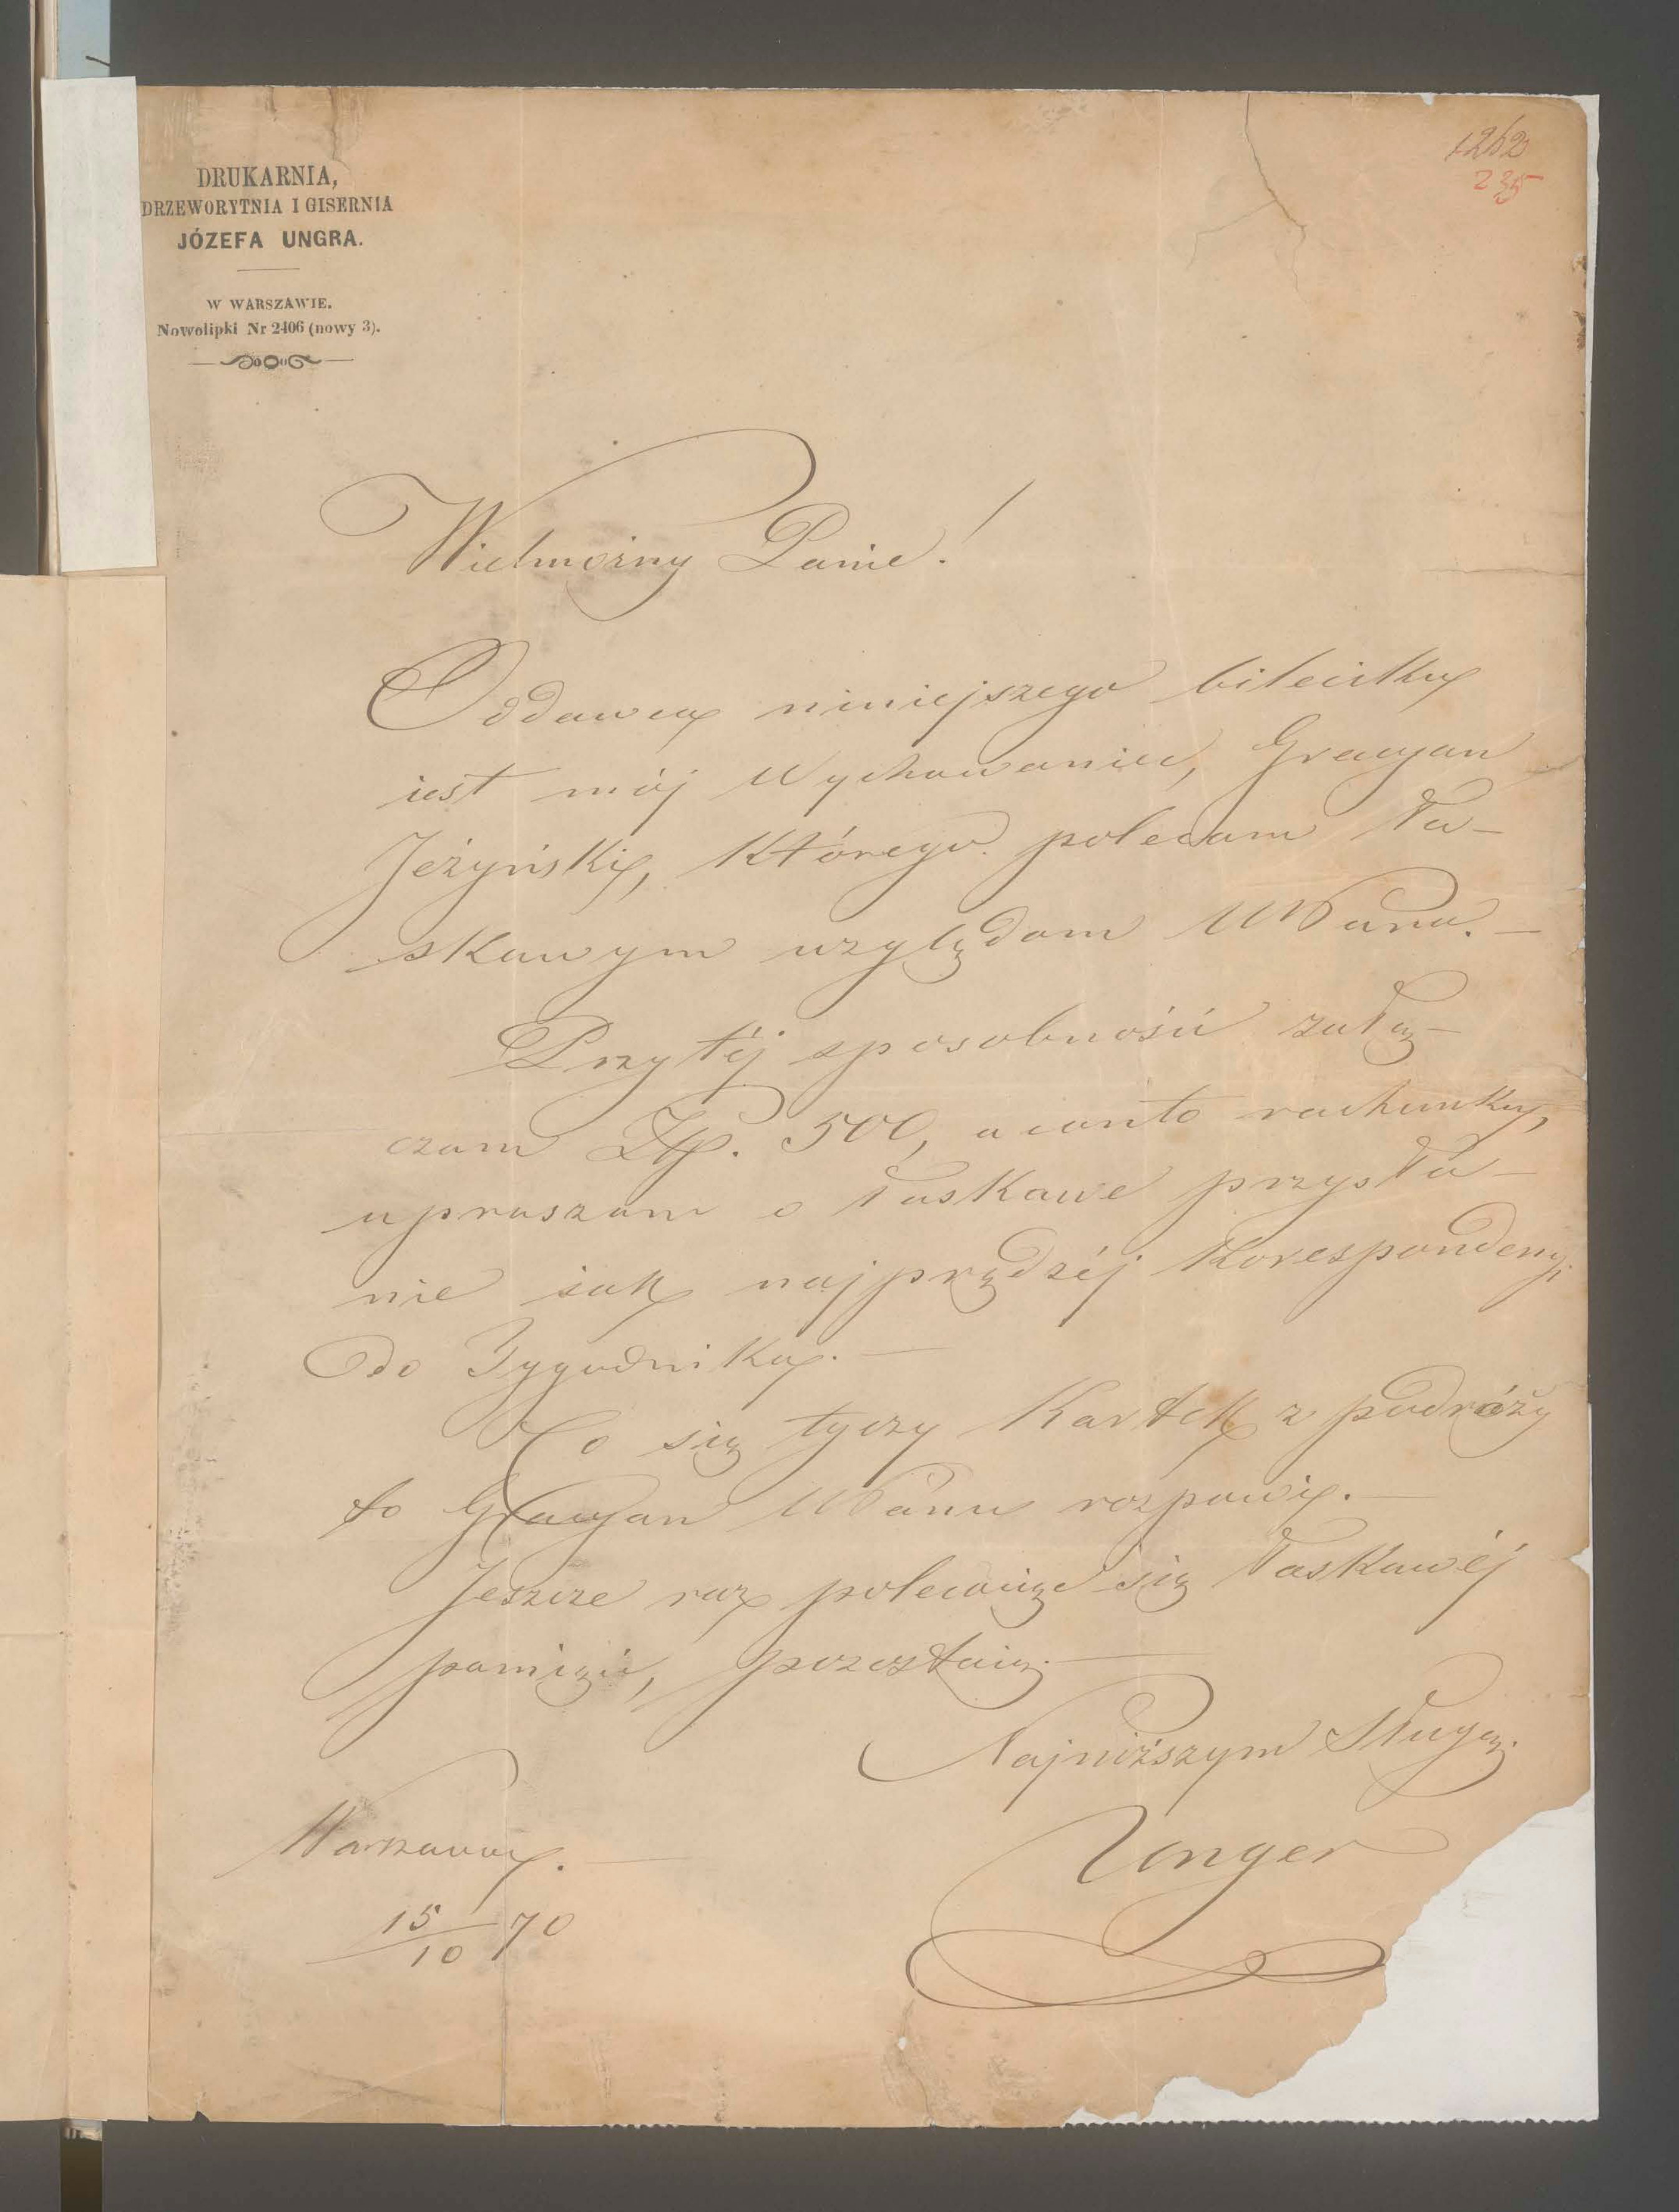 1262
235
DRUKARNIA,
DRZEWORYTNIA I GISERNIA
JÓZEFA UNGRA.
W WARSZAWIE.
Nowolipki Nr 2406 (nowy 3).
Wielmożny Panie!
Oddawcą niniejszego bileciku
iest mój Wychowaniec, Gracyan
Jeżyński, którego polecam Ła-
skawym względom WPana. —
Przy téj sposobności załą-
czam Złp. 500, a conto rachunku,
upraszam o łaskawe przysła-
nie iak najprędzéj Korespondencyi
do Tygodnika. —
Co się tyczy Kartek z podróży
to Gracyan WPanu rozpowie. —
Jeszcze raz polecaiąc się Łaskawéj
pamięci, pozostaię. —
Najniższym Sługą.
Unger
Warszawa. —
15/10 70